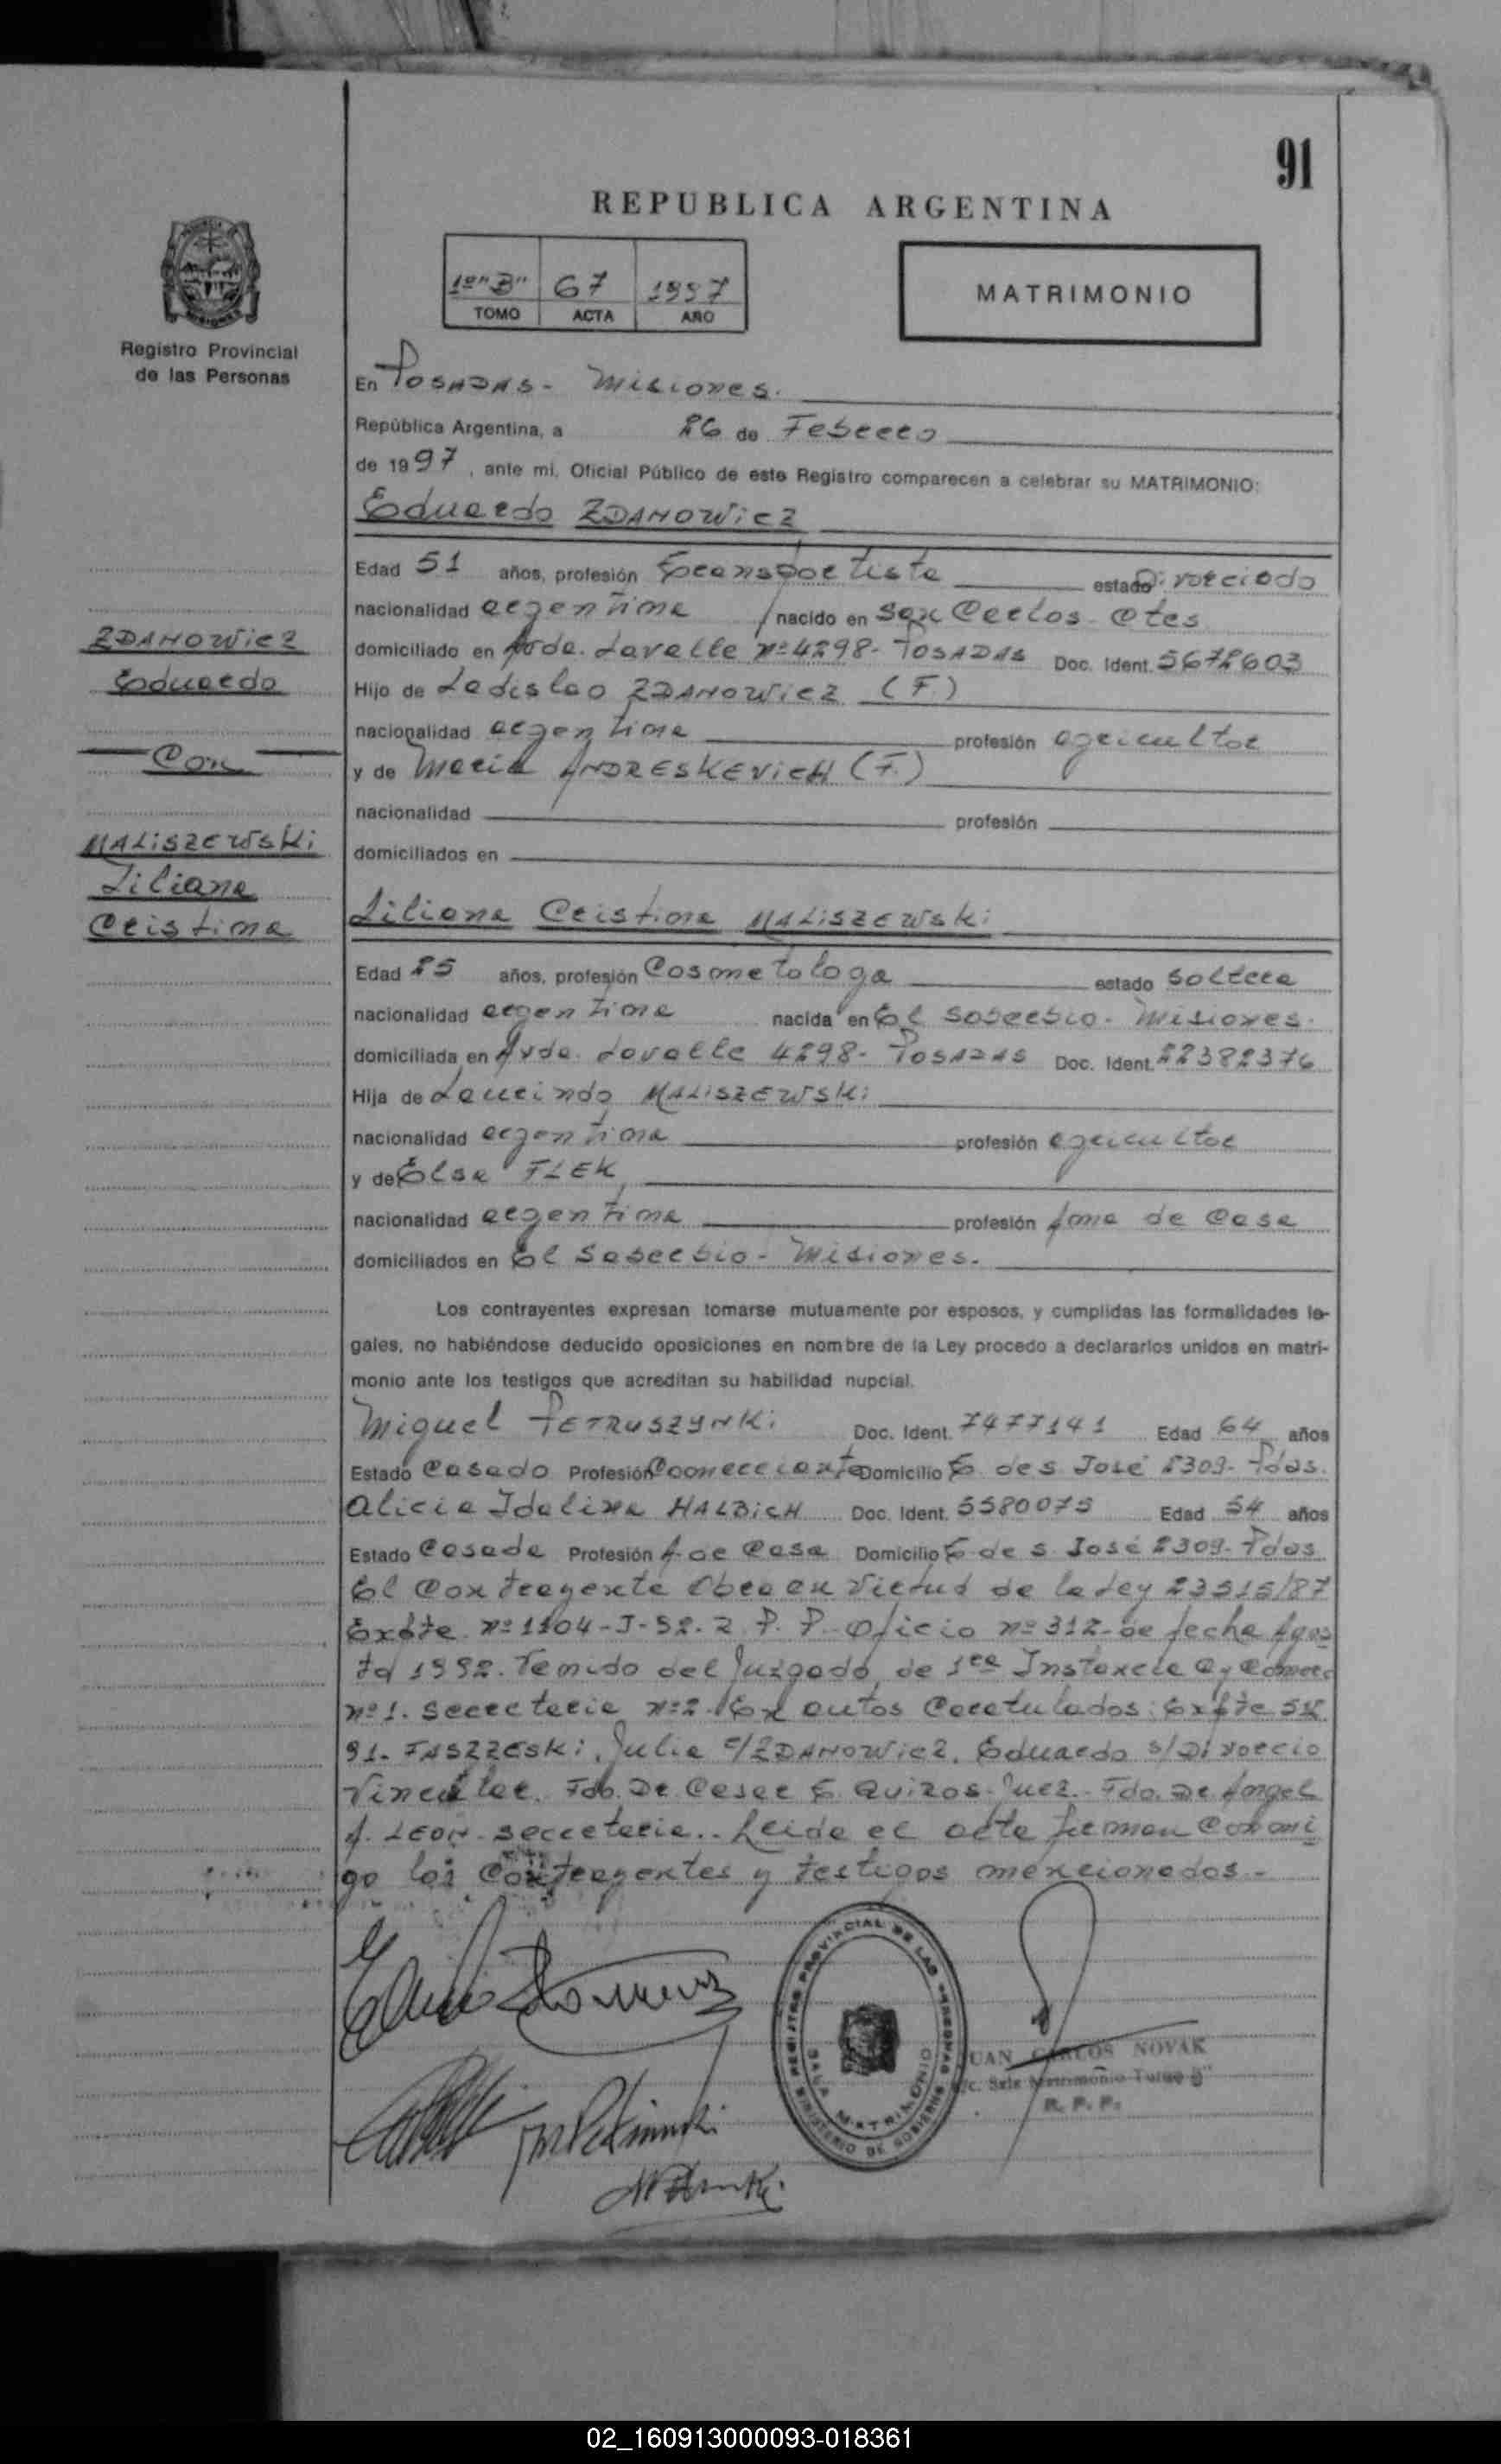 91
REPUBLICA ARGENTINA
1º "B" 67 1997
TOMO ACTA AÑO
MATRIMONIO
Registro Provincial
de las Personas
En Posadas - Misiones.
República Argentina, a 26 de Febrero
de 1997, ante mi, Oficial Público de este Registro comparecen a celebrar su MATRIMONIO:
Eduardo ZDANOWICZ
Edad 51 años, profesión transportista estado Divorciado
nacionalidad argentina nacido en San Carlos - Ctes
domiciliado en Avda. Lavalle nº 4298 - Posadas Doc. Ident. 5672603
Hijo de Ladislao ZDANOWICZ (F)
nacionalidad argentina profesión agricultor
y de Maria ANDRESKEVICH (F.)
nacionalidad profesión
domiciliados en
ZDANOWICZ
Eduardo
Con
MALISZEWSKI
Liliana
Cristina
Liliana Cristina MALISZEWSKI
Edad 25 años, profesión Cosmetologa estado Soltera
nacionalidad argentina nacida en El Soberbio - Misiones.
domiciliada en Avda. Lavalle 4298 - Posadas Doc. Ident. 22382376
Hija de Laurindo MALISZEWSKI
nacionalidad argentina profesión agricultor
y de Elsa FLEK
nacionalidad argentina profesión Ama de Casa
domiciliados en El Soberbio - Misiones.
Los contrayentes expresan tomarse mutuamente por esposos, y cumplidas las formalidades le-
gales, no habiéndose deducido oposiciones en nombre de la Ley procedo a declararlos unidos en matri-
monio ante los testigos que acreditan su habilidad nupcial.
Miguel PETRUSZYNKI Doc. Ident. 7477141 Edad 64 años
Estado Casado Profesión Comerciante Domicilio E. de S. José 2309 - Pdas.
Alicia Idelina HALBICH Doc. Ident. 5580075 Edad 54 años
Estado Casada Profesión A. de Casa Domicilio E. de S. José 2309 - Pdas
El Contrayente Obra en Virtud de la Ley 23515/87
Expte. nº 1104-J-92. R. P. P. Oficio nº 312 - de fecha Agos
to 1992. Venido del Juzgado de 1ra Instancia C. y Comerc
nº 1. Secretaria nº 2. En autos Caratulados: Expte
91. FASZZESKI, Julia c/ZDANOWICZ, Eduardo s/Divorcio
Vincular. Fdo. Dr. Cesar E. Quiros - Juez. - Fdo. Dr. Angel
A. LEON - Secretaria. . Leida el acta firman Conmi
go los Contrayentes y testigos mencionados. -
REGISTRO PROVINCIAL DE LAS PERSONAS
SALA MATRIMONIO
MINISTERIO DE GOBIERNO
UAN CARLOS NOVAK
c. Sala Matrimonio Turno
R. P. P.
02_160913000093-018361